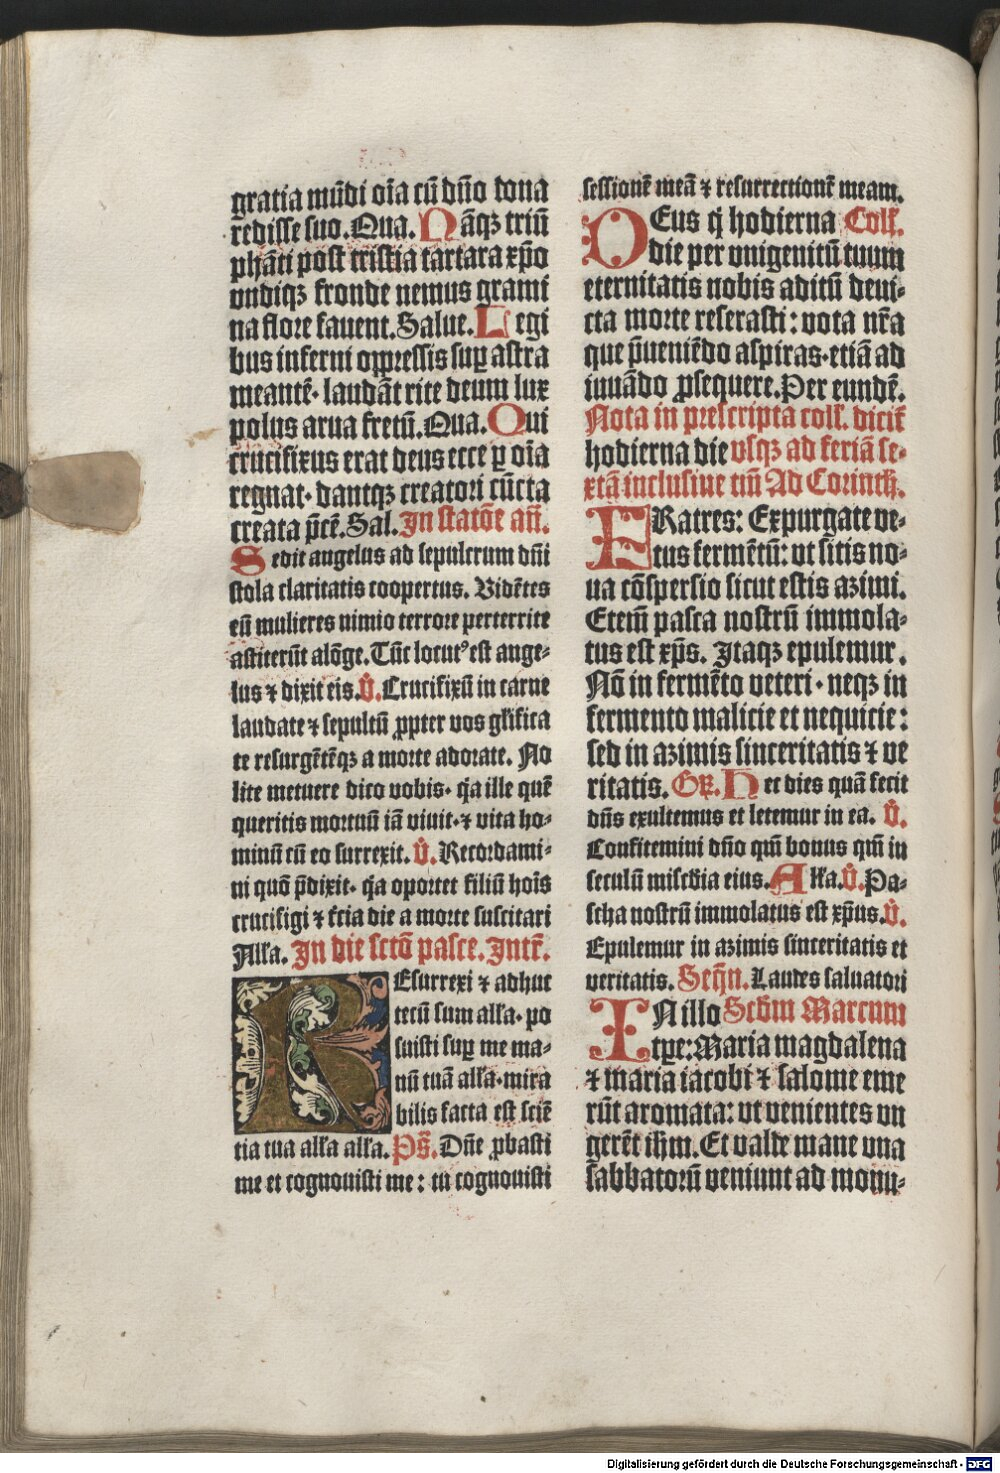 gratia mūdi oīa cū dño dona
redisse suo. Qua. Nāqꝫ triū
phāti post tristia tartara xp̄o
vndiqꝫ fronde nemus grami
na flore fauent. Salue. Legi
bus inferni oppressis suꝑ astra
meantē· laudāt rite deum lux
polus arua fretū. Qua. Qui
crucifixus erat deus ecce ꝑ oīa
regnat· dantqꝫ creatori cūcta
creata p̄ce. Sal. In statōe añ.
Sedit angelus ad sepulcrum dñi
stola claritatis coopertus. Vidētes
eū mulieres nimio terrore perterrite
astiterūt alōge. Tūc locutꝰ est ange-
lus ⁊ dixit eis. V̊. Crucifixū in carne
laudate ⁊ sepultū ꝓpter vos gl'ifica
te resurgētēqꝫ a morte adorate. No
lite metuere dico vobis· q̄a ille quē
queritis mortuū iā viuit·⁊ vita ho-
minū cū eo surrexit. V̊. Recordami-
ni quō p̄dixit· q̄a oportet filiū hoīs
crucifigi ⁊ t̄cia die a morte suscitari
All'a. In die sctō pasce. Intr̄.
Resurrexi ⁊ adhuc
tecū sum all'a· po
suisti suꝑ me ma-
nū tuā all'a·mira
bilis facta est sciē
tia tua all'a all'a. Ps̄. Dñe ꝓbasti
me et cognouisti me: tu cognouisti
sessionē meā ⁊ resurrectionē meam.
DEus q̄ hodierna Coll'.
die per vnigenitū tuum
eternitatis nobis aditū deui-
cta morte reserasti: vota nr̄a
que p̄ueniēdo aspiras·etiā ad
iuuādo ꝓsequere. Per eundē.
Nota in prescripta coll'. dicit̄
hodierna die vsqꝫ ad feriā se-
xtā inclusiue tm̄ Ad Corinth̄.
FRatres: Expurgate ve-
tus fermētū: vt sitis no-
ua cōspersio sicut estis azimi.
Etem̄ pasca nostrū immola-
tus est xp̄s. Itaqꝫ epulemur.
Nō in fermēto veteri· neqꝫ in
fermento malicie et nequicie:
sed in azimis sinceritatis ⁊ ve
ritatis. Gꝝ. Hec dies quā fecit
dñs exultemus et letemur in ea. V̊.
Confitemini dño qm̄ bonus qm̄ in
seculū misc̄dia eius. All'a. V̊. Pa-
scha nostrū immolatus est xp̄us. V̊.
Epulemur in azimis sinceritatis et
veritatis. Seq̄n. Laudes saluatori
IN illo Scd̄m Marcum
tp̄e: Maria magdalena
⁊ maria iacobi ⁊ salome eme
rūt aromata: vt venientes vn
gerēt ih̄m. Et valde mane vna
sabbatorū veniunt ad monu-
Digitalisierung gefördert durch die Deutsche Forschungsgemeinschaft - DFG